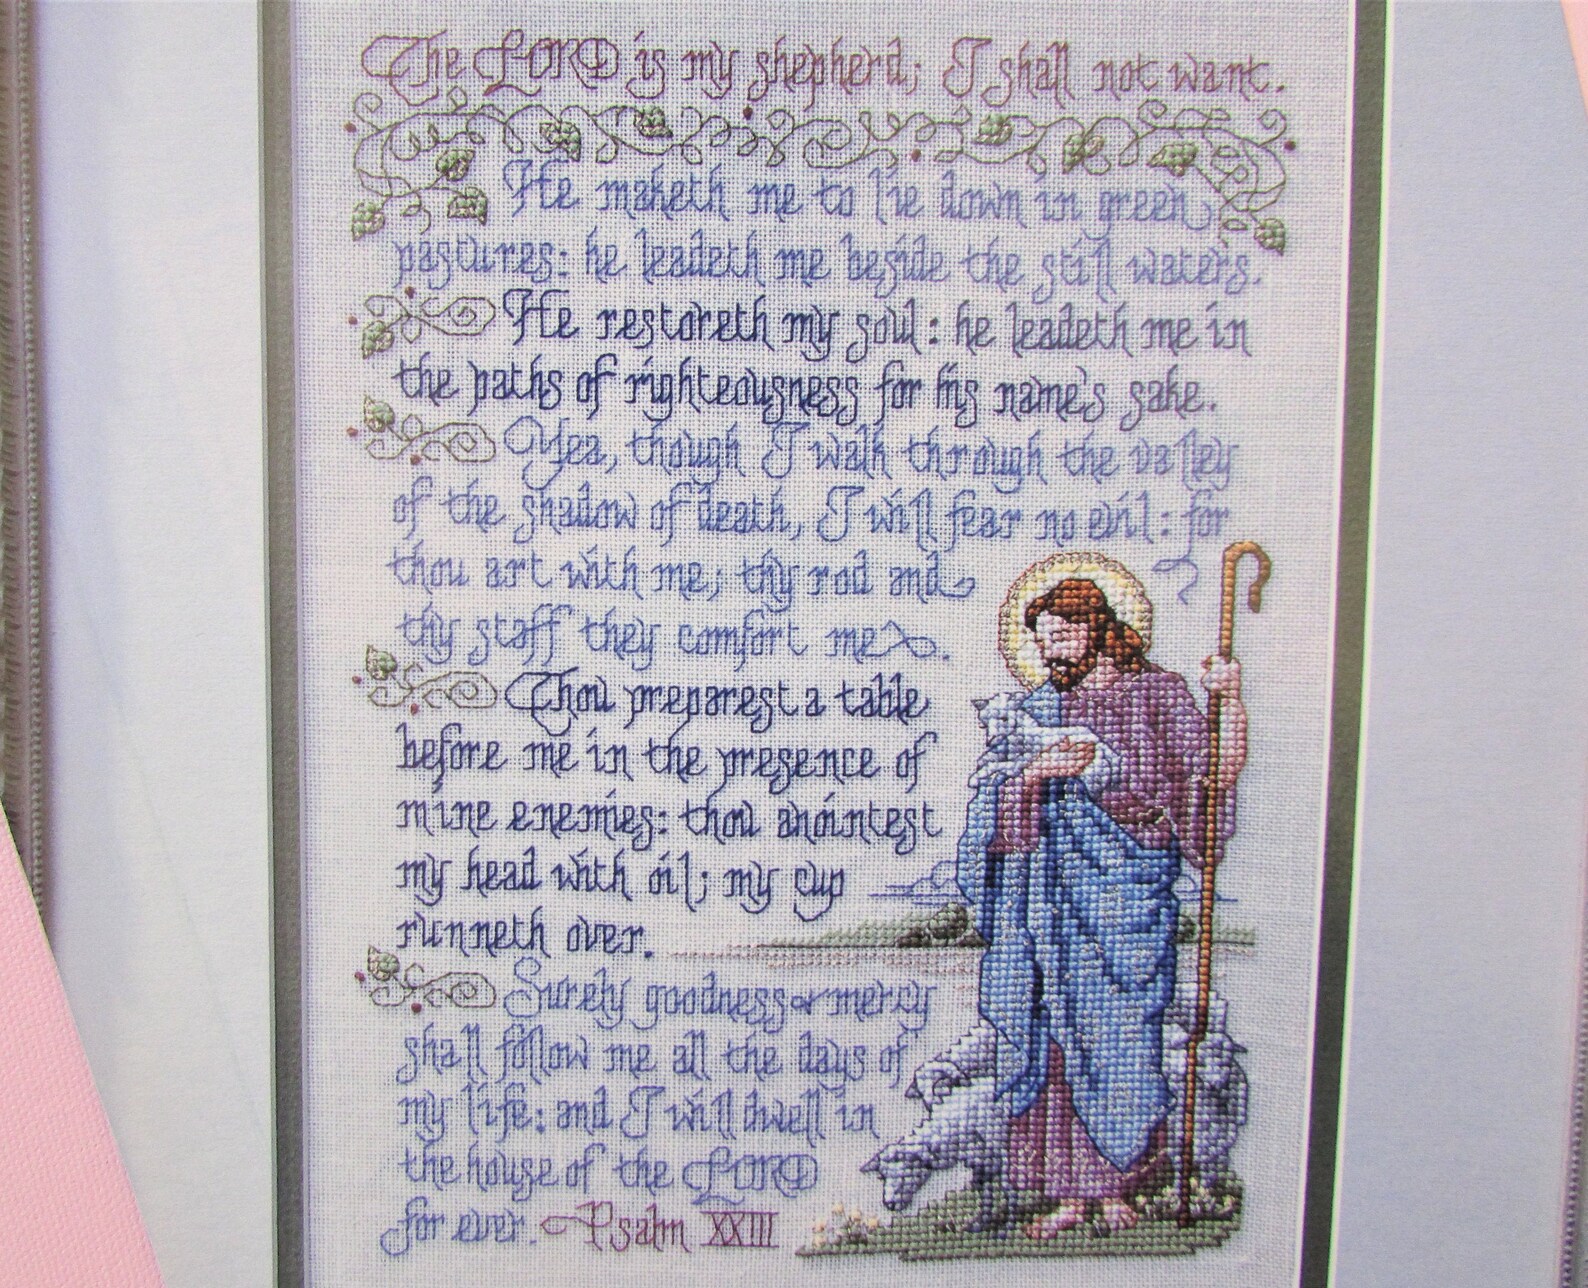 The LORD is my shepherd; I shall not want.
He maketh me to lie down in green
pastures: he leadeth me beside the still waters.
He restoreth my soul: he leadeth me in
the paths of righteousness for his name's sake.
Yea, though I walk through the valley
of the shadow of death, I will fear no evil: for
thou art with me; thy rod and
thy staff they comfort me.
Thou preparest a table
before me in the presence of
mine enemies: thou anointest
my head with oil; my cup
runneth over.
Surely goodness & mercy
shall follow me all the days of
my life: and I will dwell in
the house of the LORD
for ever. Psalm XXIII